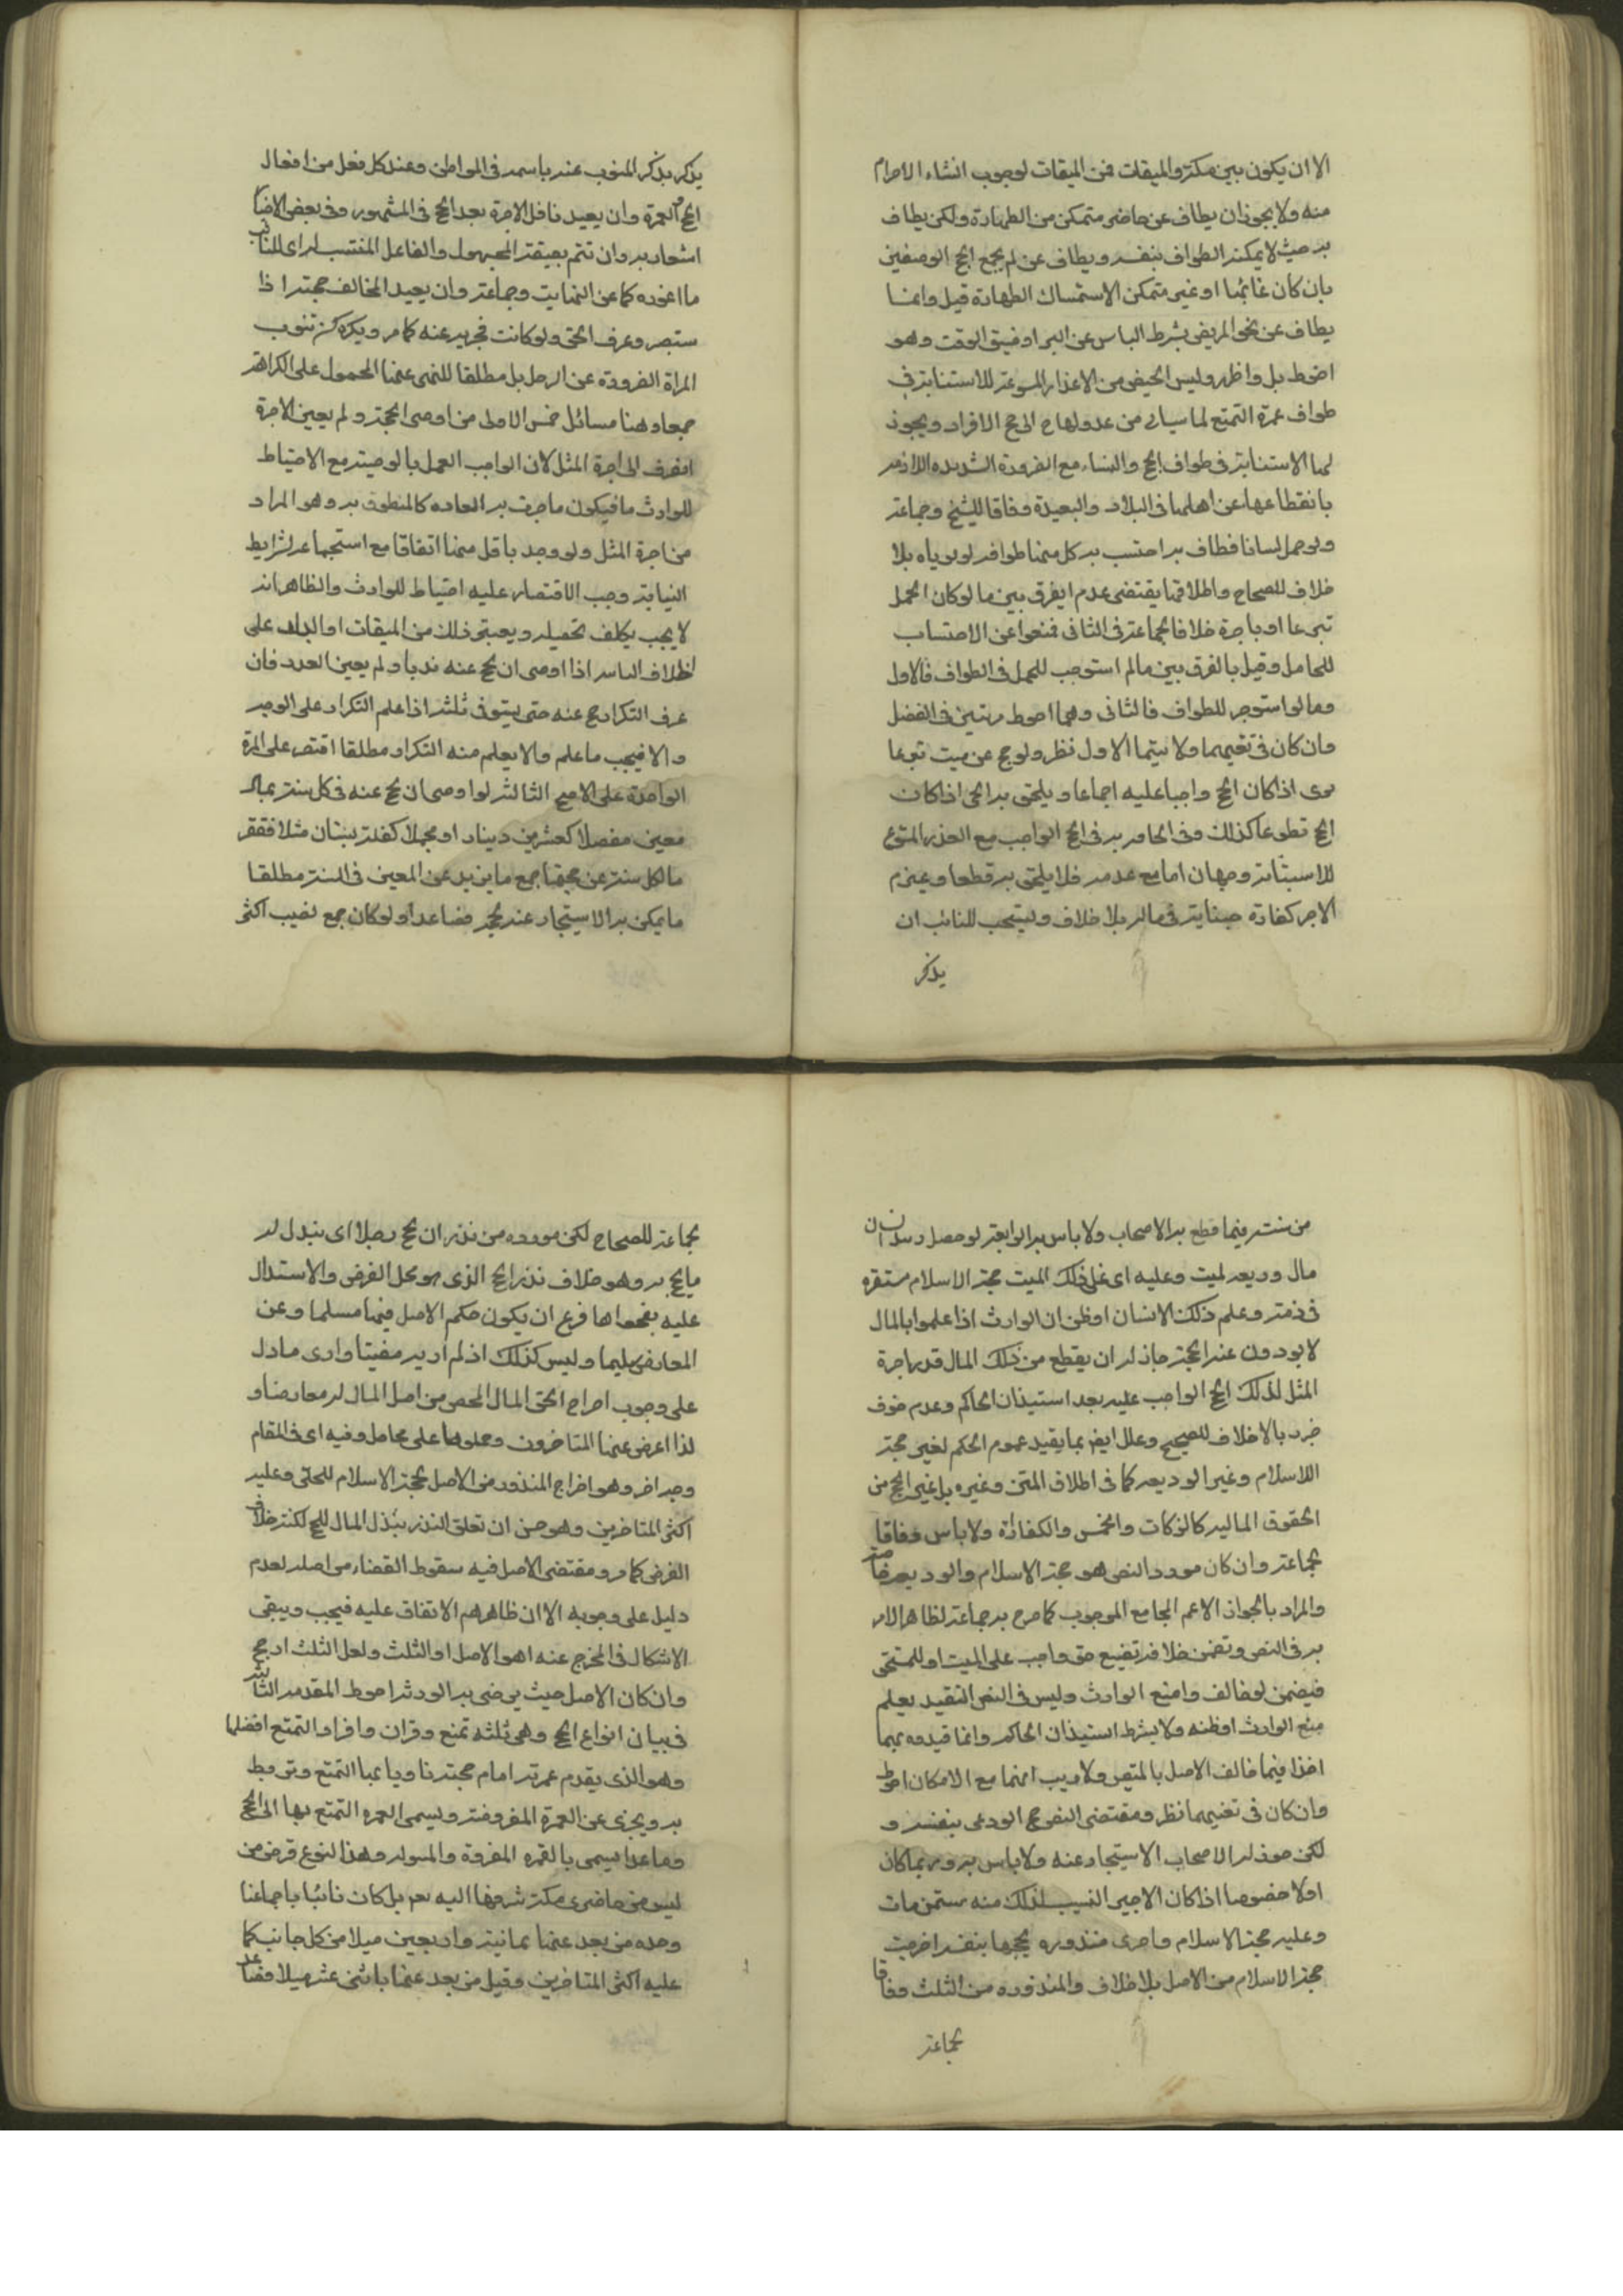 الا ان يكون بين مكة والميقات فمن الميقات لوجوب انشاء الاحرام
منه ولا يجوز ان يطاف عن حاضر متمكن من الطهارة ولكن يطاف
به حيث لا يمكنه الطواف بنفسه ويطاف عن لم يجمع الوصفين
بان كان غائبا او غير متمكن الاستمساك الطهارة قيل وانما
يطاف عن نحو المريض بشرط الياس عن البرا او ضيق الوقت وهو
احوط بل واظهر وليس الحيض من الاعذار المسوغة للاستنابة في
طواف عمرة التمتع لما سياتى من عدولها الى حج الافراد ويجوز
لها الاستنابة فى طواف الحج والنساء مع الضرورة الشديده اللازمه
بانقطاعها عن اهلها فى البلاد والبعيدة وفاقا للشيخ وجماعة
ولو حمل انسانا فطاف به احتسب به كل منهما طوافه لو نوياه بلا
خلاف للصحاح واطلاقها يقتضى عدم الفرق بين ما لو كان الحمل
تبرعا او باجرة خلافا لجماعة فى الثانى فمنعوا عن الاحتساب
للحامل وقيل بالفرق بين ما لم استوجب للحمل فى الطواف فالاول
وما لو استوجر للطواف فالثانى وهما احوط رتبتين فى الفضل
وان كان فى تعيينهما ولا سيما الاول نظر ولو حج عن ميت تبرعا
برى اذا كان الحج واجبا عليه اجماعا ويلحق به الحى اذا كان
الحج تطوعا كذلك وفى الحاقه به فى الحج الواجب مع العذر المسوغ
للاستنابة وجهان اما مع عدمه فلا يلحق به قطعا ويلزم
الاجير كفارة جنايته فى ماله بلا خلاف ويستحب للنائب ان
يذكر
يذكر بذكر المنوب عنه باسمه فى المواطن وعند كل فعل من افعال
الحج والعمرة وان يعيد فاضل الاجرة بعد الحج فى المشهور وفى بعض الاخبار
اشعار به وان تتم بصيغة المجهول والفاعل المنتسب له اى للنائب
ما اعوزه كما عن النهاية وجماعة وان يعيد المخالف حجته اذا
ستبصر وعرف الحق ولو كانت مجزية عنه كما مر ويكره ان تنوب
المراة الضرورة عن الرجل بل مطلقا للنهى عنها المحمول على الكراهة
جمعا وهنا مسائل خمس الاولى من اوصى بحجة ولم يعين الاجرة
انصرف الى اجرة المثل لان الواجب العمل بالوصية مع الاحتياط
للوارث فيكون ما جرت به العاده كالمنطوق به وهو المراد
من اجرة المثل ولو وجد باقل منها اتفاقا مع استجماعه لشرايط
النيابة وجب الاقتصار عليه احتياط للوارث والظاهر انه
لا يجب يكلف تحصيله ويعتبر ذلك من الميقات او البلد على
الخلاف السادس اذا اوصى ان يحج عنه ندبا ولم يعين العدد فان
عرف التكرار حج عنه حتى يستوفى ثلثه اذا علم التكرار على الوجه
والا فيجب ما علم والا يعلم منه التكرار مطلقا اقتصر على المرة
الواحدة على الاصح الثالثة لو اوصى ان يحج عنه فى كل سنة بمال
معين مفصلا كعشرين دينار او مجملا كغلة بستان مثلا فقصر
مال كل سنة عن حجها جمع ما يزيد عن المعين فى السنة مطلقا
ما يمكن به الاستيجار عنه لحجة فصاعدا ولو كان جمع نصيب اكثر
من سنة فيما قطع به الاصحاب ولا باس به الرابعة لو حصل بيد انسان
مال وديعة لميت وعليه اى على ذلك الميت حجة الاسلام مستقره
فى ذمته وعلم ذلك الانسان او ظن ان الوارث اذا علموا بالمال
لا يودون عنه الحجة جاز له ان يقطع من ذلك المال قدر اجرة
المثل لذلك الحج الواجب عليه بعد استيذان الحاكم وعدم خوف
ضرر بلا خلاف للصحيح وعلل ايضا بما يفيد عموم الحكم لغير حجة
الاسلام وغير الوديعه كما فى اطلاق المتن وغيره بل غير الحج من
الحقوق الماليه كالزكات والخمس والكفارة ولا باس وفاقا
لجماعة وان كان مورد النص هو حجة الاسلام والوديعة خاصة
والمراد بالجواز الاعم الجامع للوجوب كما صرح به جماعة لظاهر الامر
به فى النص وتضمن خلافه تضييع حق واجب على الميت او للمستحق
فيضمن لو خالف وامتنع الوارث وليس فى النص التقييد بعلم
منع الوارث او ظنه ولا يشترط استيذان الحاكم وانما قيدوه بهما
اخذا فيما خالف الاصل بالمتيقن ولا ريب انهما مع الامكان احوط
وان كان فى تعيينهما نظر ومقتضى النص حج الودعى بنفسه و
لكن جوز له الاصحاب الاستيجار عنه ولا باس به وربما كان
اولا خصوصا اذا كان الاجير انسب لذلك منه ستمن مات
وعليه حجة الاسلام واخرى منذوره يحجها بنفسه اخرجت
حجة الاسلام من الاصل بلا خلاف والمنذوره من الثلث وفاقا
لجماعة
لجماعة للصحاح لكن مورده من نذر ان يحج رجلا اى يبذل له
ما يحج به وهو خلاف نذر الحج الذى هو محل الفرض والاستدلال
عليه بفحواها فرع ان يكون حكم الاصل فيها مسلما وعن
المعارض سليما وليس كذلك اذ لم ار به مفتيا وارى ما دل
على وجوب اخراج الحق المال المحض من اصل المال له معارضا و
لذا اعرض عنها المتاخرون وحملوها على محامل وفيه اى فى المقام
وجه اخر وهو اخراج المنذور من الاصل كحجة الاسلام للحلى وعليه
اكثر المتاخرين وهو حسن ان تعلق النذر ببذل المال للحج لكنه خلاف
الفرض كما مر ومقتضى الاصل فيه سقوط القضاء من اصله لعدم
دليل على وجوبه الا ان ظاهرهم الاتفاق عليه فيجب ويبقى
الاشكال فى المخرج عنه اهو الاصل او الثلث ولعل الثلث ارجح
وان كان الاصل حيث يرضى به الورثة احوط المقدمه الثالثه
فى بيان انواع الحج وهى ثلثه تمتع وقران وافراد التمتع افضلها
وهو الذى يقدم عمرته امام حجته ناويا بها التمتع وترتبط
به ويجزى عن العمرة المفروضة ويسمى العمره التمتع بها الى الحج
وما عداها يسمى بالعمره المفردة والمبتوله وهذا النوع فرض من
ليس من حاضرى مكة شرفها الله بعد بل كان نائبا باجماعنا
وحده من بعد عنها بثمانية واربعين ميلا من كل جانب كما
عليه اكثر المتاخرين وقيل من بعد عنها باثنى عشر ميلا فصاعدا